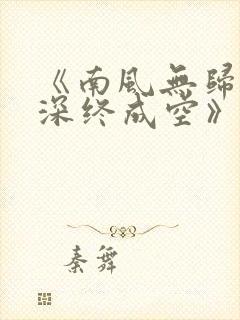 《南風無歸
深終成空》
秦舞